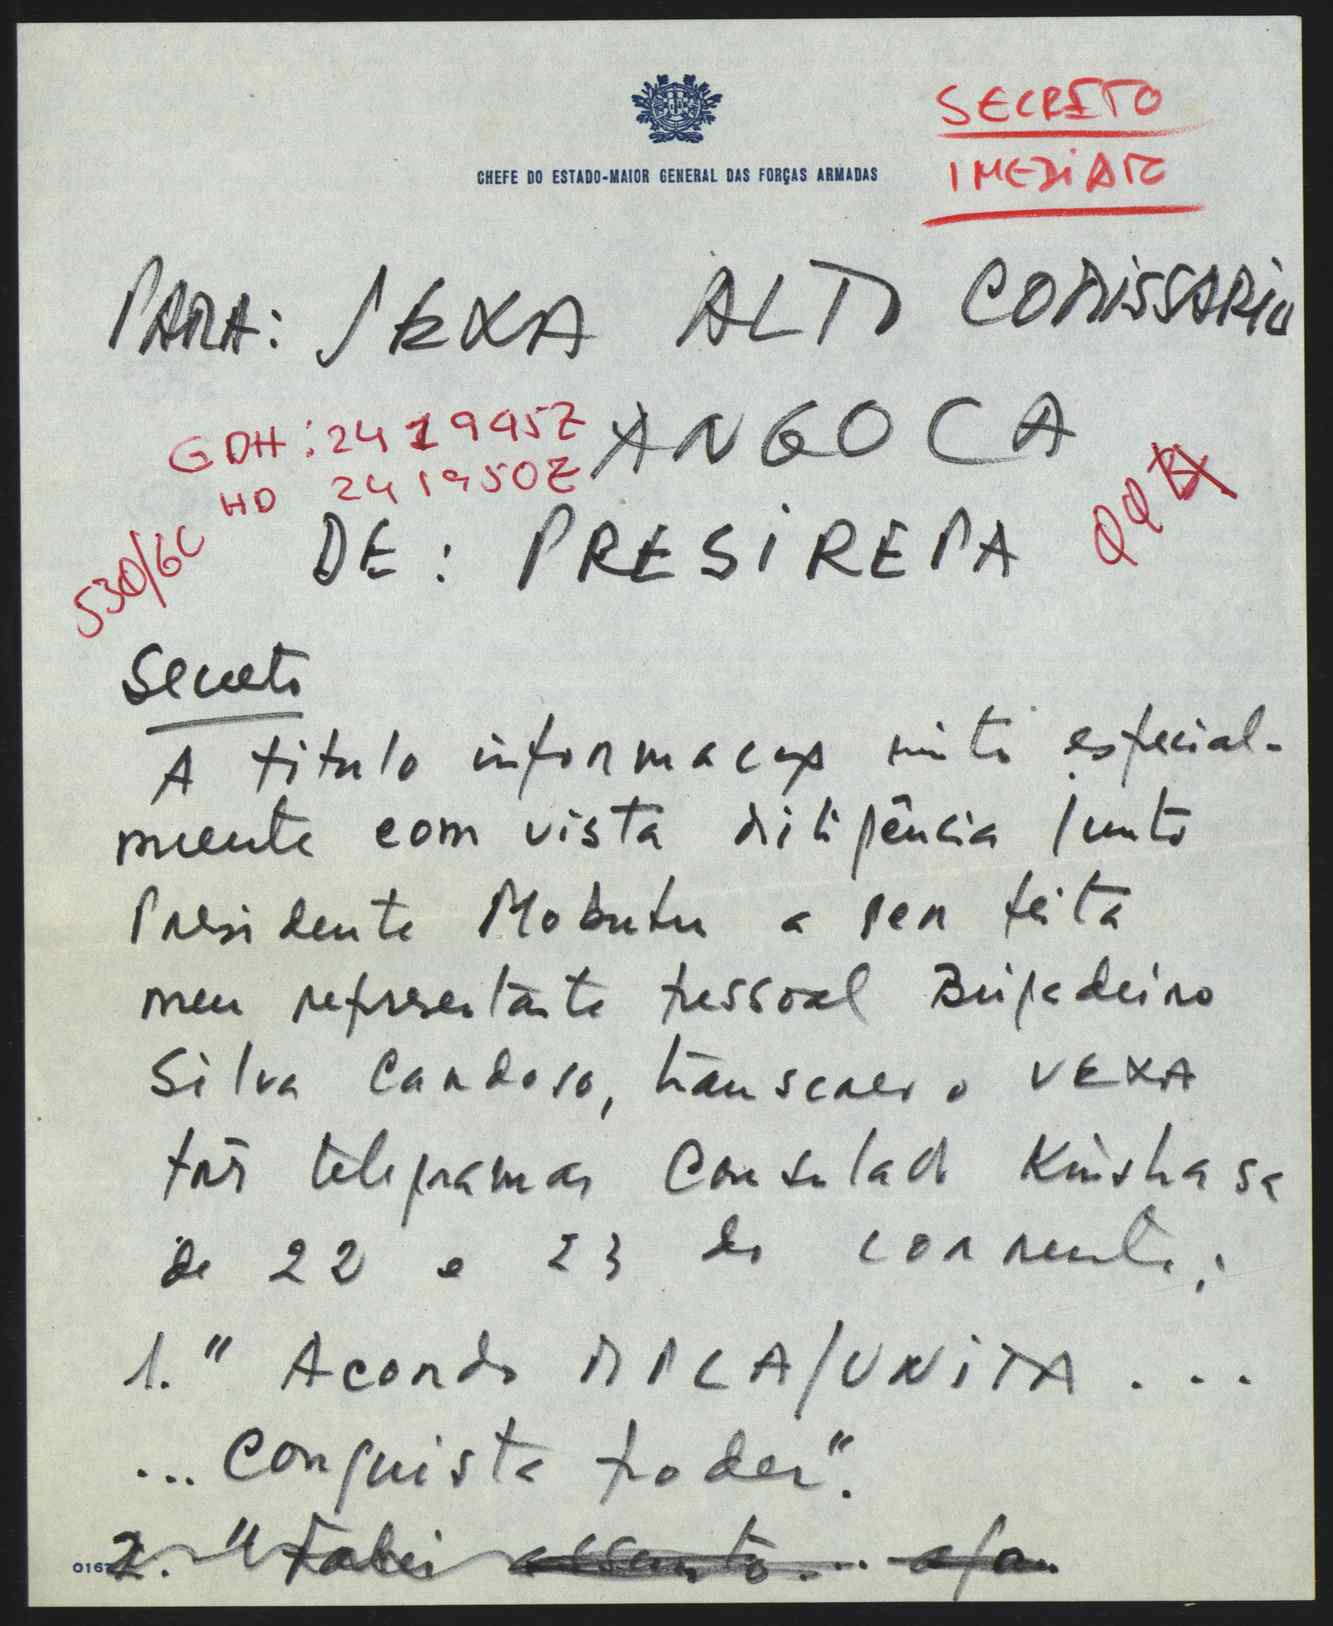 SECRETO
IMEDIATO
CHEFE DO ESTADO-MAIOR GENERAL DAS FORÇAS ARMADAS
PARA: SEXA ALTO COMISSARIO
GDH: 241945Z ANGOLA
HD 241950Z
530/GC
DE: PRESIREPA
Secreto
A titulo informaçao muito especial-
mente com vista diligência junto
Presidente Mobutu a ser feita
meu representante pessoal Brigadeiro
Silva Cardoso, transcrevo VEXA
três telegramas Consulado Kinshasa
de 22 e 23 do corrente:
1. " Acordo MPLA/UNITA ...
... Conquista poder".
2. "Falei assunto...
016